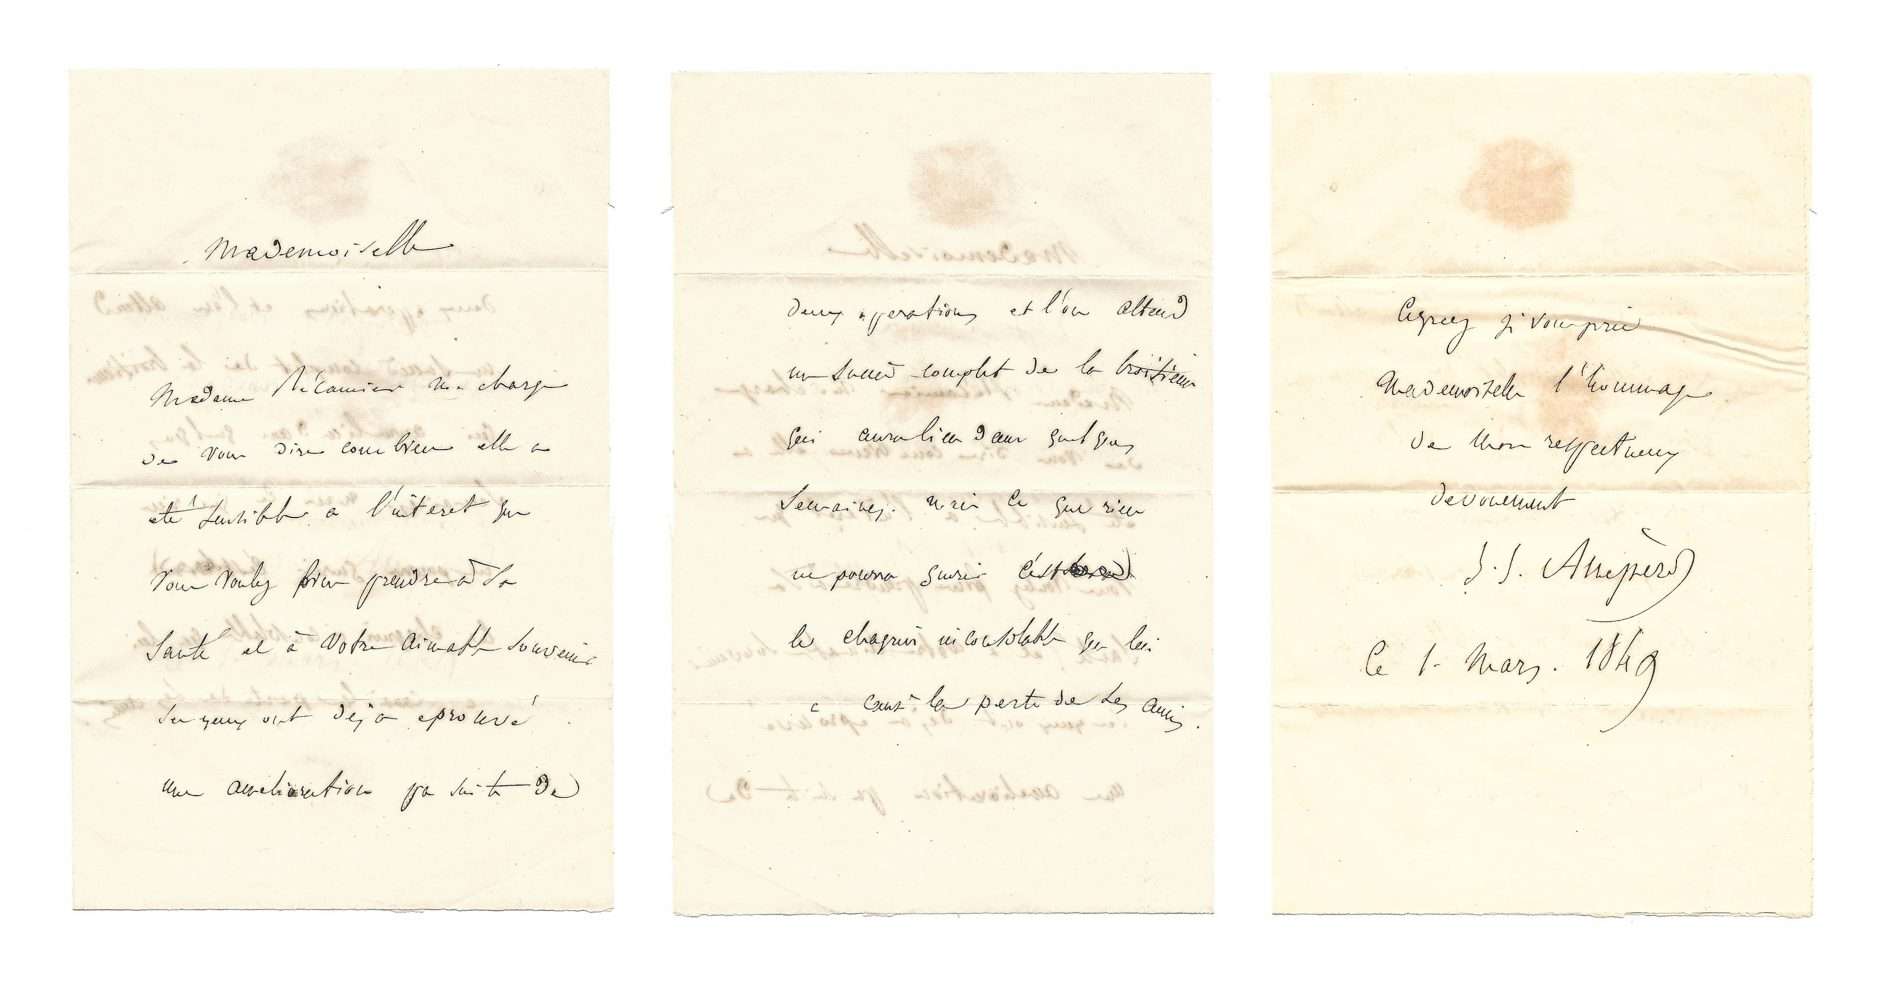 Mademoiselle
Madame Récamier me charge
de vous dire combien elle a
eté sensible a l'interet que
vous voulez bien prendre à sa
santé et à votre aimable souvenir
ses yeux ont dejà eprouvé
une amelioration par suite de
deux operations et l'on attend
un succès complet de la troisieme
qui aura lieu dans quelques
semaines. mais ce que rien
ne pourra guerir c'est
le chagrin inconsolable que lui
a causé la perte de ses amis.
Agreez je vous prie
Mademoiselle l'hommage
de mon respectueux
devouement
J. J. Ampère
Ce 1. Mars. 1849